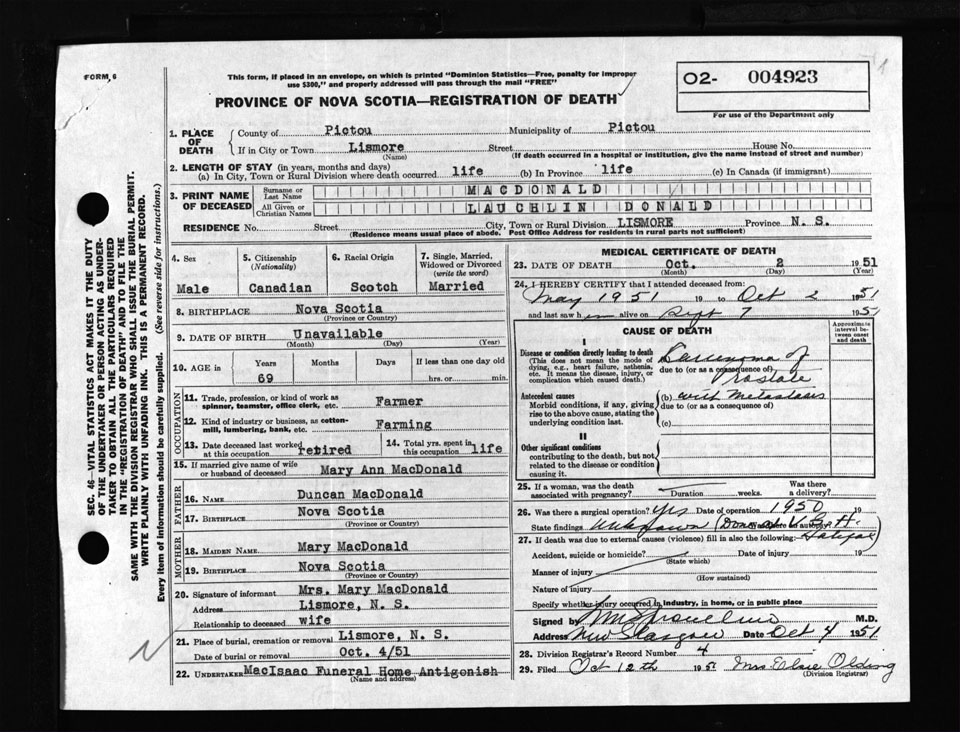 FORM 6
This form, if placed in an envelope, on which is printed "Dominion Statistics—Free, penalty for improper
use $300," and properly addressed will pass through the mail "FREE"
O2- 004923
For use of the Department only
PROVINCE OF NOVA SCOTIA—REGISTRATION OF DEATH
1. PLACE OF DEATH
County of Pictou Municipality of Pictou
If in City or Town Lismore Street House No.
(Name) (If death occurred in a hospital or institution, give the name instead of street and number)
2. LENGTH OF STAY (in years, months and days)
(a) In City, Town or Rural Division where death occurred life (b) In Province life (c) In Canada (if immigrant)
3. PRINT NAME OF DECEASED
Surname or Last Name MACDONALD
All Given or Christian Names LAUCHLIN DONALD
RESIDENCE No. Street City, Town or Rural Division LISMORE Province N. S.
(Residence means usual place of abode. Post Office Address for residents in rural parts not sufficient)
SEC. 46—VITAL STATISTICS ACT MAKES IT THE DUTY
OF THE UNDERTAKER OR PERSON ACTING AS UNDER-
TAKER TO OBTAIN ALL THE PARTICULARS REQUIRED
IN THE "REGISTRATION OF DEATH" AND TO FILE THE
SAME WITH THE DIVISION REGISTRAR WHO SHALL ISSUE THE BURIAL PERMIT.
WRITE PLAINLY WITH UNFADING INK. THIS IS A PERMANENT RECORD.
Every item of information should be carefully supplied. (See reverse side for instructions.)
4. Sex
Male
5. Citizenship
(Nationality)
Canadian
6. Racial Origin
Scotch
7. Single, Married,
Widowed or Divorced
(write the word)
Married
8. BIRTHPLACE Nova Scotia
(Province or Country)
9. DATE OF BIRTH Unavailable
(Month) (Day) (Year)
10. AGE in Years Months Days If less than one day old
69 hrs. or min.
OCCUPATION
11. Trade, profession, or kind of work as
spinner, teamster, office clerk, etc. Farmer
12. Kind of industry or business, as cotton-
mill, lumbering, bank, etc. Farming
13. Date deceased last worked
at this occupation retired
14. Total yrs. spent in
this occupation life
15. If married give name of wife
or husband of deceased Mary Ann MacDonald
FATHER
16. NAME Duncan MacDonald
17. BIRTHPLACE Nova Scotia
(Province or Country)
MOTHER
18. MAIDEN NAME Mary MacDonald
19. BIRTHPLACE Nova Scotia
(Province or Country)
20. Signature of informant Mrs. Mary MacDonald
Address Lismore, N. S.
Relationship to deceased wife
21. Place of burial, cremation or removal Lismore, N. S.
Date of burial or removal Oct. 4/51
22. UNDERTAKER MacIsaac Funeral Home Antigonish
(Name and address)
MEDICAL CERTIFICATE OF DEATH
23. DATE OF DEATH Oct. 2 1951
(Month) (Day) (Year)
24. I HEREBY CERTIFY that I attended deceased from:
May 1951 19 to Oct 2 1951
and last saw him alive on Sept 7 1951
CAUSE OF DEATH
Approximate interval between onset and death
I
Disease or condition directly leading to death
(This does not mean the mode of
dying, e.g., heart failure, asthenia,
etc. It means the disease, injury, or
complication which caused death.)
Carcinoma of
due to (or as a consequence of)
Prostate
Antecedent causes
Morbid conditions, if any, giving
rise to the above cause, stating the
underlying condition last
(b) with Metastases
due to (or as a consequence of)
(c)
II
Other significant conditions
contributing to the death, but not
related to the disease or condition
causing it.
25. If a woman, was the death
associated with pregnancy? Duration weeks. Was there
a delivery?
26. Was there a surgical operation? Yes Date of operation 1950 19
State findings Unknown (Done at V. G. H. Halifax)
27. If death was due to external causes (violence) fill in also the following:
Accident, suicide or homicide? Date of injury 19
(State which)
Manner of injury
(How sustained)
Nature of injury
Specify whether injury occurred in industry, in home, or in public place
Signed by M.D.
Address New Glasgow Date Oct 4 1951
28. Division Registrar's Record Number 4
29. Filed Oct 12th 1951 Mrs Elsie Olding
(Division Registrar)